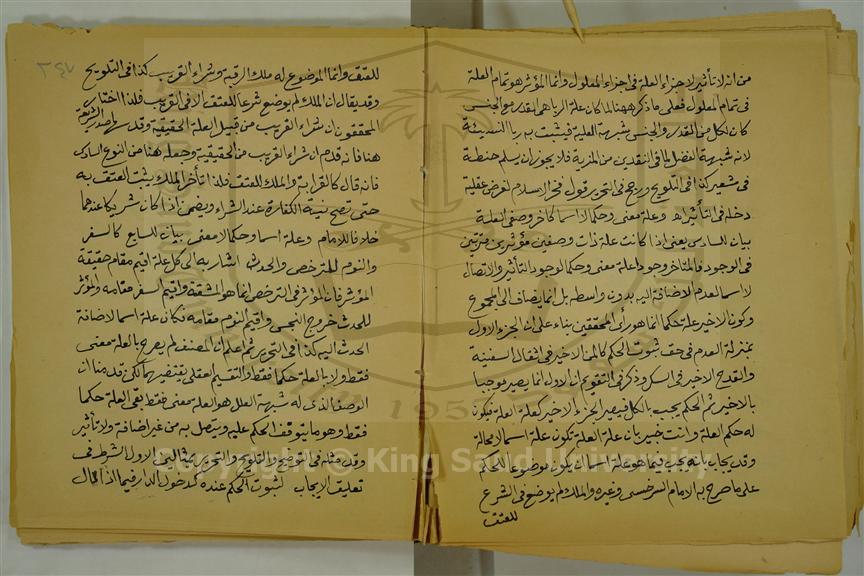 من انه لا تأثير لاجزاء العلة في اجزاء المعلول وانما المؤثر هو تمام العلة
في تمام المعلول فعلى ما ذكر ههنا لما كان علة الربا هي القدر مع الجنس
كان لكل من القدر والجنس شبهة العلية فيثبت به ربا النسيئة
لانه شبهة الفضل لما في النقدين من المزية فلا يجوز ان يسلم حنطة
في شعير كذا في التلويح ورجح في التحرير قول فخر الاسلام لفرض عقلية
دخله في التأثير اه وعلة معنى وحكما لا اسما كاخر وصفي العلة
بيان للسادس يعني اذا كانت علة ذات وصفين مؤثرين مترتبين
في الوجود فالمتاخر وجودا علة معنى وحكما لوجود التأثير والاتصال
لا اسما لعدم الاضافة اليه بدون واسطة بل انما يضاف الى المجموع
وكون الاخير علة حكما انما هو رأي المحققين بناء على ان الجزء الاول
بمنزلة العدم في حق ثبوت الحكم كالمن الاخير في اثقال السفينة
والقدح الاخير في السكر وذكر في التقويم ان الاول انما يصير موجبا
بالاخير ثم الحكم يجب بالكل فيصير الجزء الاخير كعلة العلة فيكون
له حكم العلة وانت خبير بان علة العلة تكون علة اسما لا محالة
وقد يجاب بانه يجب فيما هو علة اسما ان يكون موضوعا للحكم
على ما صرح به الامام السرخسي وغيره والملك لم يوضع في الشرع
للعتق
٢٤٧
للعتق وانما الموضوع له ملك الرقبة وشراء القريب كذا في التلويح
وقد يقال ان الملك لم يوضع شرعا للعتق الا في القريب فلذا اختار
المحققون ان شراء القريب من قبيل العلة الحقيقية وقد صدر الشريعة
هنا فانه قدم ان شراء القريب من الحقيقية وجعله هنا من النوع السادس
فانه قال كالقرابة والملك للعتق فلذا تأخر الملك يثبت العتق به
حتى تصح نية الكفارة عند الشراء ويضمن اذا كان شريكا عندهما
خلافا للامام وعلة اسما وحكما لا معنى بيان للسابع كالسفر
والنوم للترخص والحدث اشار به الى كل علة اقيم مقام حقيقة
المؤثر فان المؤثر في الترخص انما هو المشقة واقيم السفر مقامه والمؤثر
للحدث خروج النجس واقيم النوم مقامه فكان علة اسما لاضافة
الحدث اليه كذا في التحرير ثم اعلم ان المصنف لم يصرح بالعلة معنى
فقط ولا بالعلة حكما فقط والتقسيم العقلي يقتضيهما لكن قدمنا ان
الوصف الذي له شبهة العلل هو العلة معنى فقط بقي العلة حكما
فقط وهو ما يتوقف الحكم عليه ويتصل به من غير اضافة ولا تأثير
وقد مثله في التوضيح والتلويح والتحرير بمثالين الاول الشرط في
تعليق الايجاب لثبوت الحكم عنده كدخول الدار فيما اذا قال
Copyright © King Saud University
1957